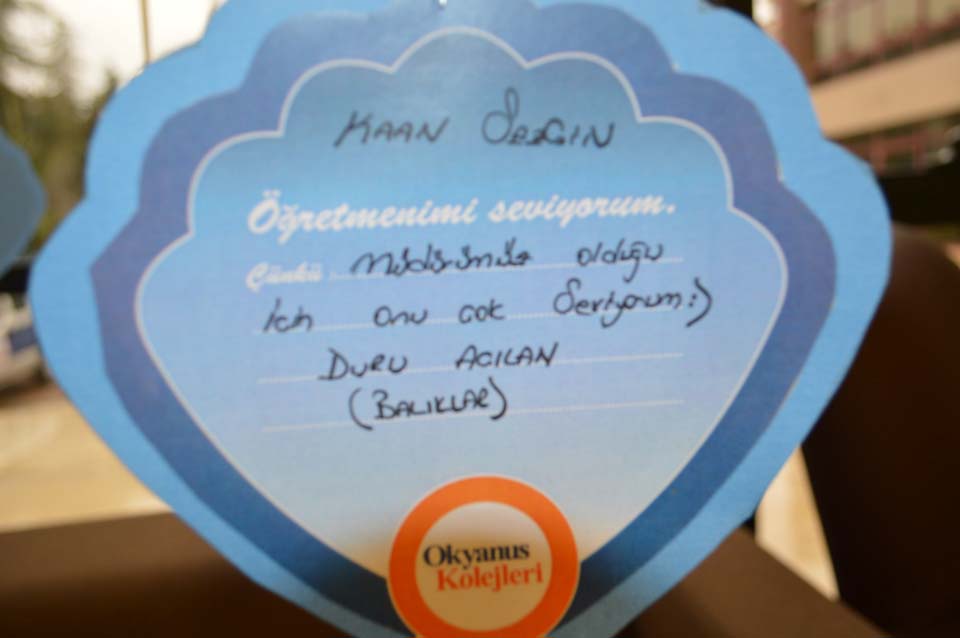 KAAN SEZGIN
Öğretmenimi seviyorum.
Çünkü müdürümüz olduğu
için onu çok seviyorum:)
DURU ACILAN
(BALIKLAR)
Okyanus
Kolejleri